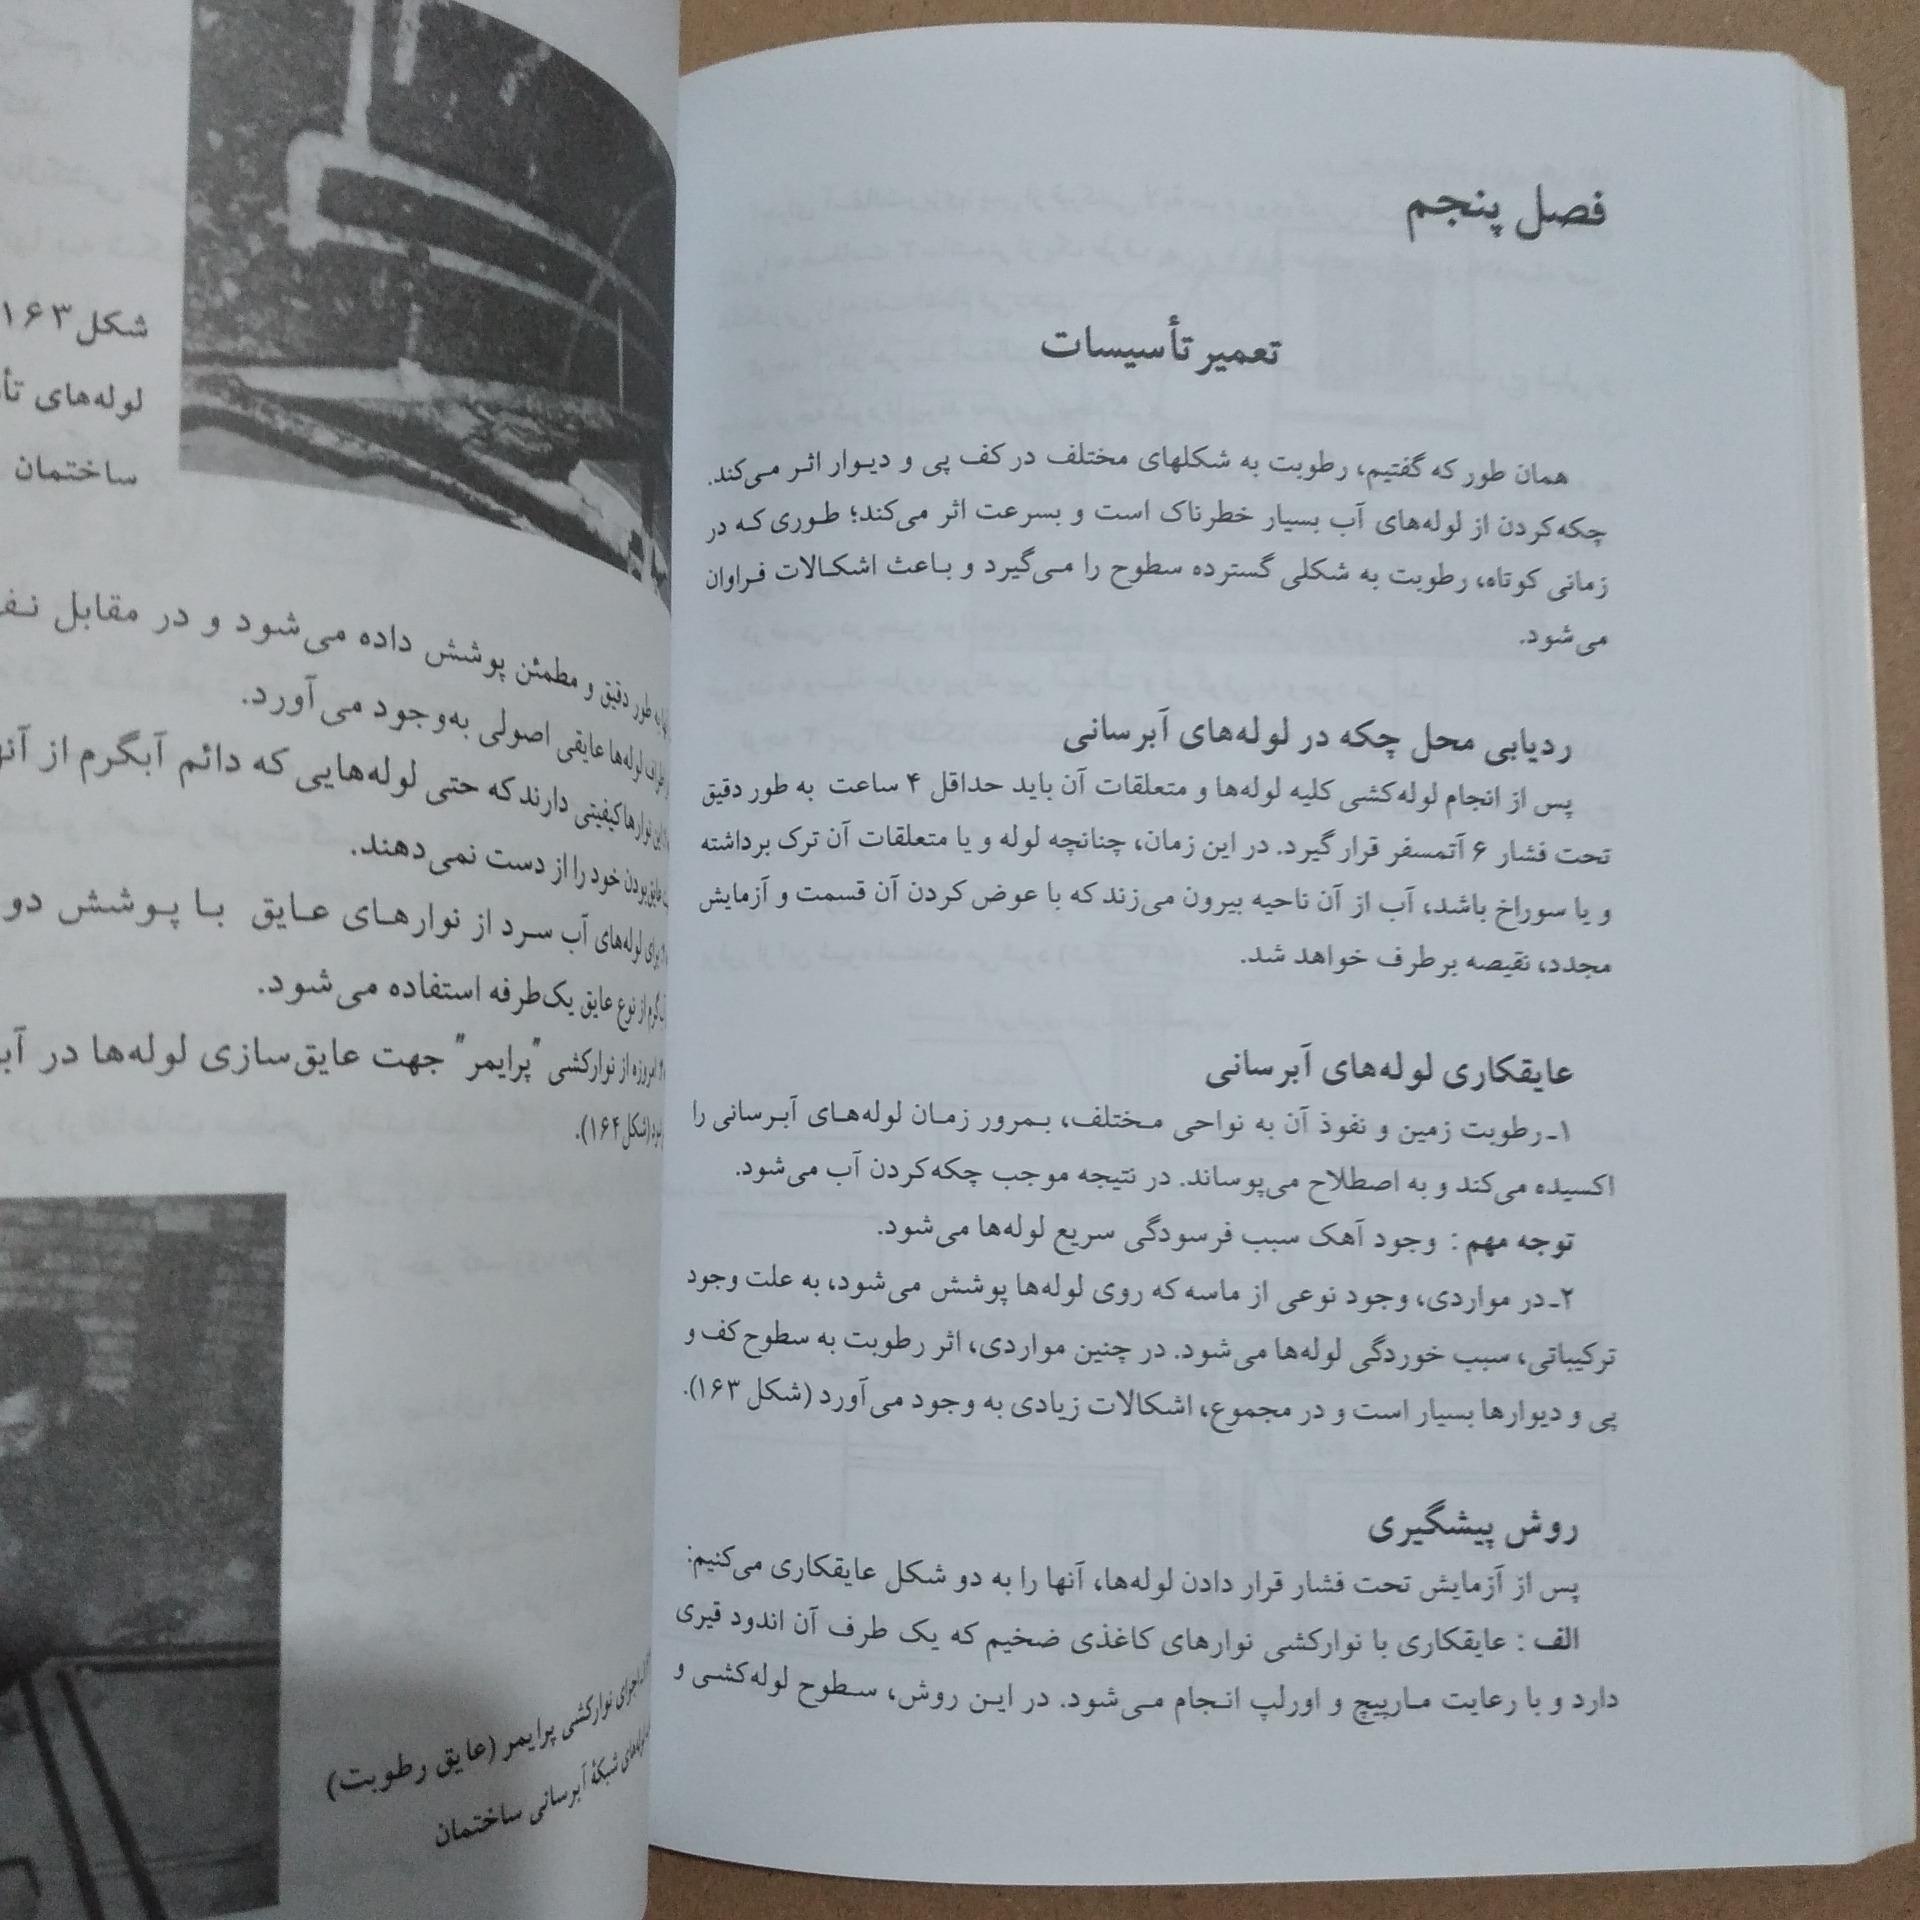 فصل پنجم
تعمیر تأسیسات
همان طور که گفتیم، رطوبت به شکلهای مختلف در کف پی و دیوار اثر می‌کند.
چکه کردن از لوله‌های آب بسیار خطرناک است و بسرعت اثر می‌کند؛ طوری که در
زمانی کوتاه، رطوبت به شکلی گسترده سطوح را می‌گیرد و باعث اشکالات فراوان
می‌شود.
ردیابی محل چکه در لوله‌های آبرسانی
پس از انجام لوله‌کشی کلیه لوله‌ها و متعلقات آن باید حداقل ۴ ساعت به طور دقیق
تحت فشار ۶ آتمسفر قرار گیرد. در این زمان، چنانچه لوله و یا متعلقات آن ترک برداشته
و یا سوراخ باشد، آب از آن ناحیه بیرون می‌زند که با عوض کردن آن قسمت و آزمایش
مجدد، نقیصه برطرف خواهد شد.
عایقکاری لوله‌های آبرسانی
۱ـ رطوبت زمین و نفوذ آن به نواحی مختلف، بمرور زمان لوله‌های آبرسانی را
اکسیده می‌کند و به اصطلاح می‌پوساند. در نتیجه موجب چکه کردن آب می‌شود.
توجه مهم : وجود آهک سبب فرسودگی سریع لوله‌ها می‌شود.
۲ـ در مواردی، وجود نوعی از ماسه که روی لوله‌ها پوشش می‌شود، به علت وجود
ترکیباتی، سبب خوردگی لوله‌ها می‌شود. در چنین مواردی، اثر رطوبت به سطوح کف و
پی و دیوارها بسیار است و در مجموع، اشکالات زیادی به وجود می‌آورد (شکل ۱۶۳).
روش پیشگیری
پس از آزمایش تحت فشار قرار دادن لوله‌ها، آنها را به دو شکل عایقکاری می‌کنیم:
الف : عایقکاری با نوارکشی نوارهای کاغذی ضخیم که یک طرف آن اندود قیری
دارد و با رعایت مارپیچ و اورلپ انجام می‌شود. در این روش، سطوح لوله‌کشی و
شکل ۱۶۳
لوله‌های
ساختمان
طور دقیق و مطمئن پوشش داده می‌شود و در مقابل
لوله‌ها عایقی اصولی به‌وجود می‌آورد.
این نوارها کیفیتی دارند که حتی لوله‌هایی که دائم آبگرم از
عایق‌بودن خود را از دست نمی‌دهند.
برای لوله‌های آب سرد از نوارهای عایق با پوشش دو
از نوع عایق یک‌طرفه استفاده می‌شود.
امروزه از نوارکشی "پرایمر" جهت عایق‌سازی لوله‌ها در
(شکل ۱۶۴).
اجرای نوارکشی پرایمر (عایق رطوبت)
شبکهٔ آبرسانی ساختمان